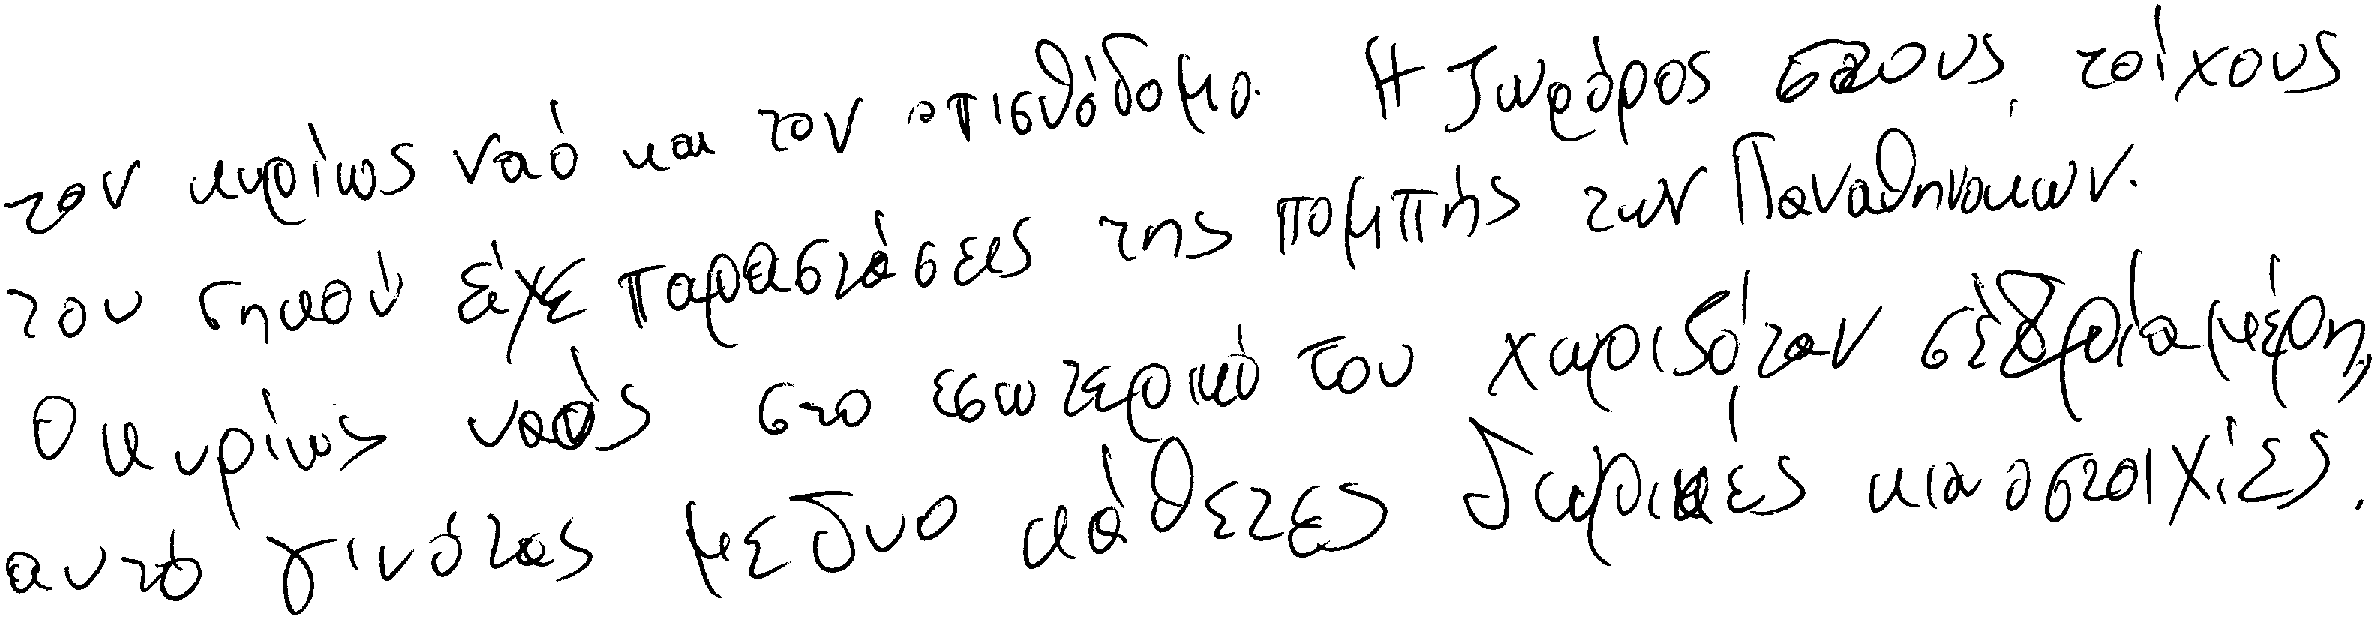 τον κυρίως ναό και τον οπισθόδομο. Η ζωφόρος στους τοίχους
του σηκού είχε παραστάσεις της πομπής των Παναθηναίων.
Ο κυρίως ναός στο εσωτερικό του χωριζόταν σε τρία μέρη,
αυτό γινόταν με δυο κάθετες δωρικές κιονοστοιχίες.